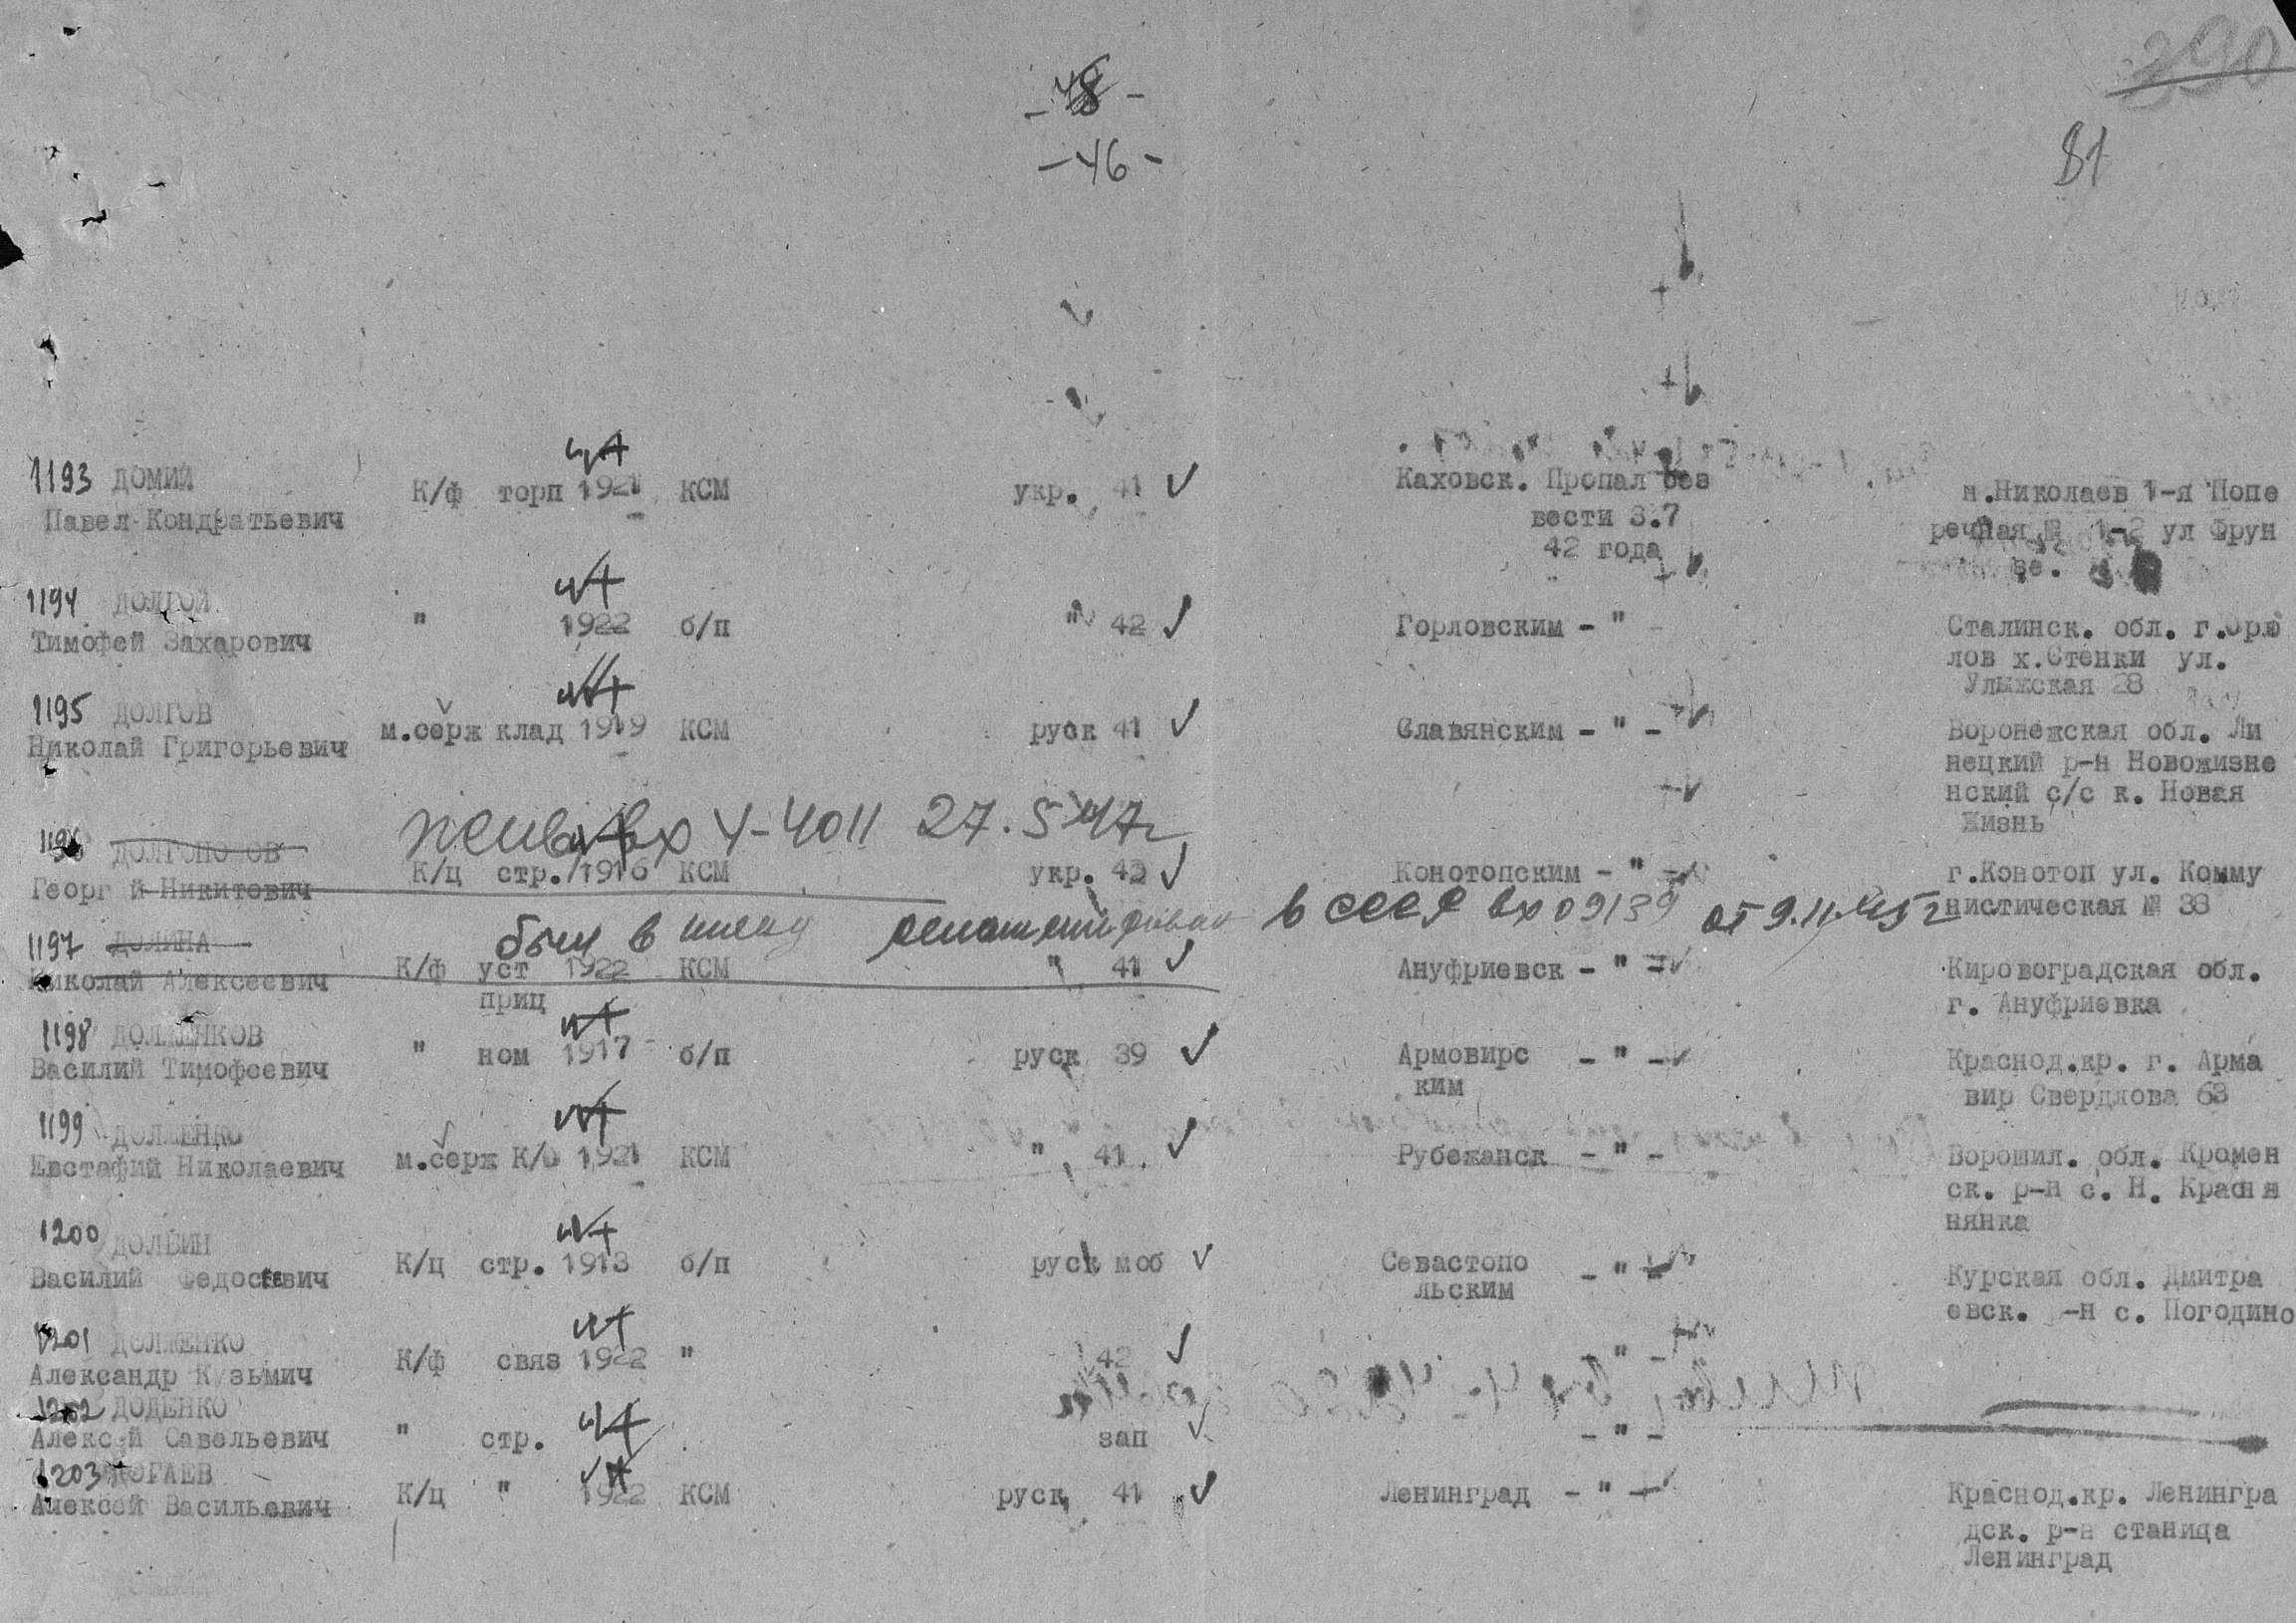 290
- 48 -
- 46 -
81
1193 ДОМИЙ
Павел Кондратьевич К/ф торп 1921 КСМ укр. 41 Каховск. Пропал без н.Николаев 1-я Попе
вести 3.7 речная № 1-2 ул Фрун
42 года зе.
1194 ДОЛГОЙ
Тимофей Захарович " 1922 б/п " 42 Горловским - " - Сталинск. обл. г.Орло
лов х.Стенки ул.
Улыжская 28
1195 ДОЛГОВ
Николай Григорьевич м.серж клад 1919 КСМ руск 41 Славянским - " - Воронежская обл. Ли
нецкий р-н Новожизне
нский с/с к. Новая
Жизнь
жив вх 4-4011 27.5 47г
1196 ДОЛГОПО ОВ
Георг й Никитович К/ц стр. 1916 КСМ укр. 42 Конотопским - " - г.Конотоп ул. Комму
нистическая № 38
был в плену репатриирован в СССР вх 09139 от 9.11.45г
1197 ДОЛИНА
Николай Алексеевич К/ф уст 1922 КСМ " 41 Ануфриевск - " - Кировоградская обл.
приц г. Ануфриевка
1198 ДОЛЖЕНКОВ
Василий Тимофеевич " ном 1917 б/п руск 39 Армовирс - " - Краснод.кр. г. Арма
ким вир Свердлова 63
1199 ДОЛЖЕНКО
Евстафий Николаевич м.серж К/О 1921 КСМ " 41 Рубежанск - " - Ворошил. обл. Кромен
ск. р-н с. Н. Красня
нянка
1200 ДОЛБИН
Василий Федосеевич К/ц стр. 1913 б/п руск моб Севастопо - " - Курская обл. Дмитра
льским евск. -н с. Погодино
1201 ДОЛЖЕНКО
Александр К зьмич К/ф связ 1922 " 42 - " -
1202 ДОДЕНКО
Алексей Савельевич " стр. зап - " -
1203 ДОГАЕВ
Алексей Васильевич К/ц " 1922 КСМ руск 41 Ленинград - " - Краснод.кр. Ленингра
дск. р-н станица
Ленинград